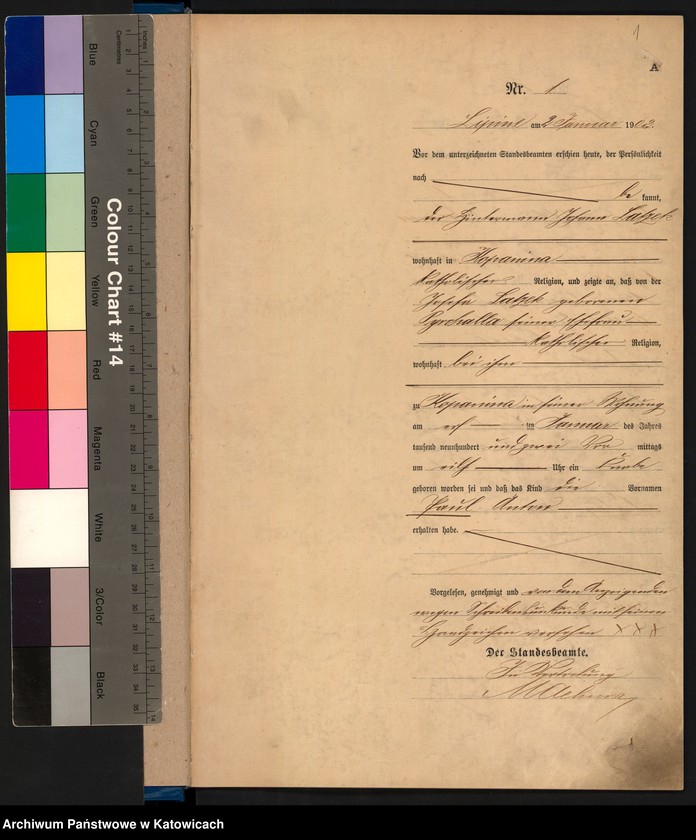 1
A
Nr. 1.
Lipine am 2 Januar 1902.
Vor dem unterzeichneten Standesbeamten erschien heute, der Persönlichkeit
nach
be kannt,
der Johann Latzek
wohnhaft in Kopanina
katholischer Religion, und zeigte an, daß von der
Josefa Latzek geborenen
seiner Ehefrau
katholischer Religion,
wohnhaft bei ihm
zu Kopanina in seiner Wohnung
am ten Januar des Jahres
tausend neunhundert und zwei Vor mittags
um elf Uhr ein Knabe
geboren worden sei und daß das Kind die Vornamen
Paul Anton
erhalten habe.
Vorgelesen, genehmigt und von dem Anzeigenden
wegen Schreibensunkunde mit seinem
Handzeichen versehen XXX
Der Standesbeamte.
In Vertretung
Blue
Cyan
Green
Yellow
Red
Magenta
White
3/Color
Black
Colour Chart #14
Centimetres
Inches
Archiwum Państwowe w Katowicach